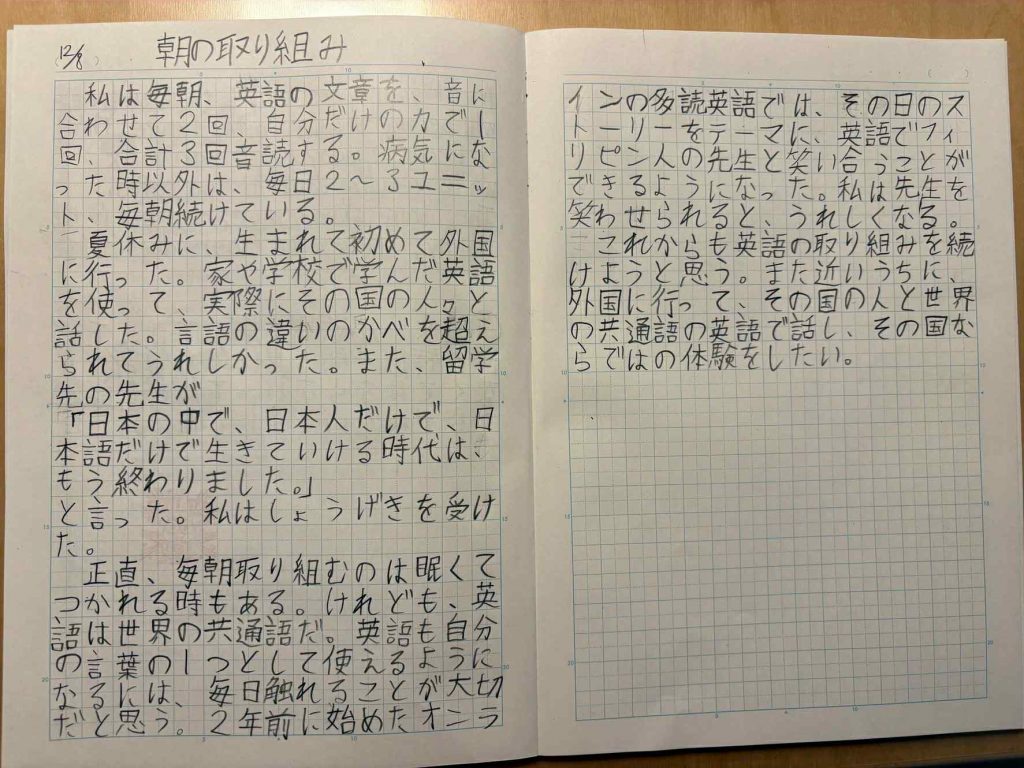 12/8 朝の取り組み
私は毎朝、英語の文章を、音に
合わせて2回、自分だけの力で1
回、合計3回音読する。病気にな
った時以外は、毎日2〜3ユニッ
ト、毎朝続けている。
夏休みに、生まれて初めて外国
に行った。家や学校で学んだ英語
を使って、実際にその国の人々と
話した。言語の違いのかべを超え
られてうれしかった。また、留学
先の先生が
「日本の中で、日本人だけで、日
本語だけで生きていける時代は、
もう終わりました。」
と言った。私はしょうげきを受け
た。
正直、毎朝取り組むのは眠くて
つかれる時もある。けれども、英
語は世界の共通語だ。英語も自分
の言葉の1つとして使えるように
なるには、毎日触れることが大切
だと思う。2年前に始めたオンラ
インの多読英語では、その日のス
トーリーをテーマに、英語でフィ
リピン人の先生と笑い合うことが
できるようになった。私は先生を
笑わせられると、うれしくなる。
これからも英語の取り組みを続
けようと思う。また近いうちに、
外国に行って、その国の人と世界
の共通語の英語で話し、その国な
らではの体験をしたい。